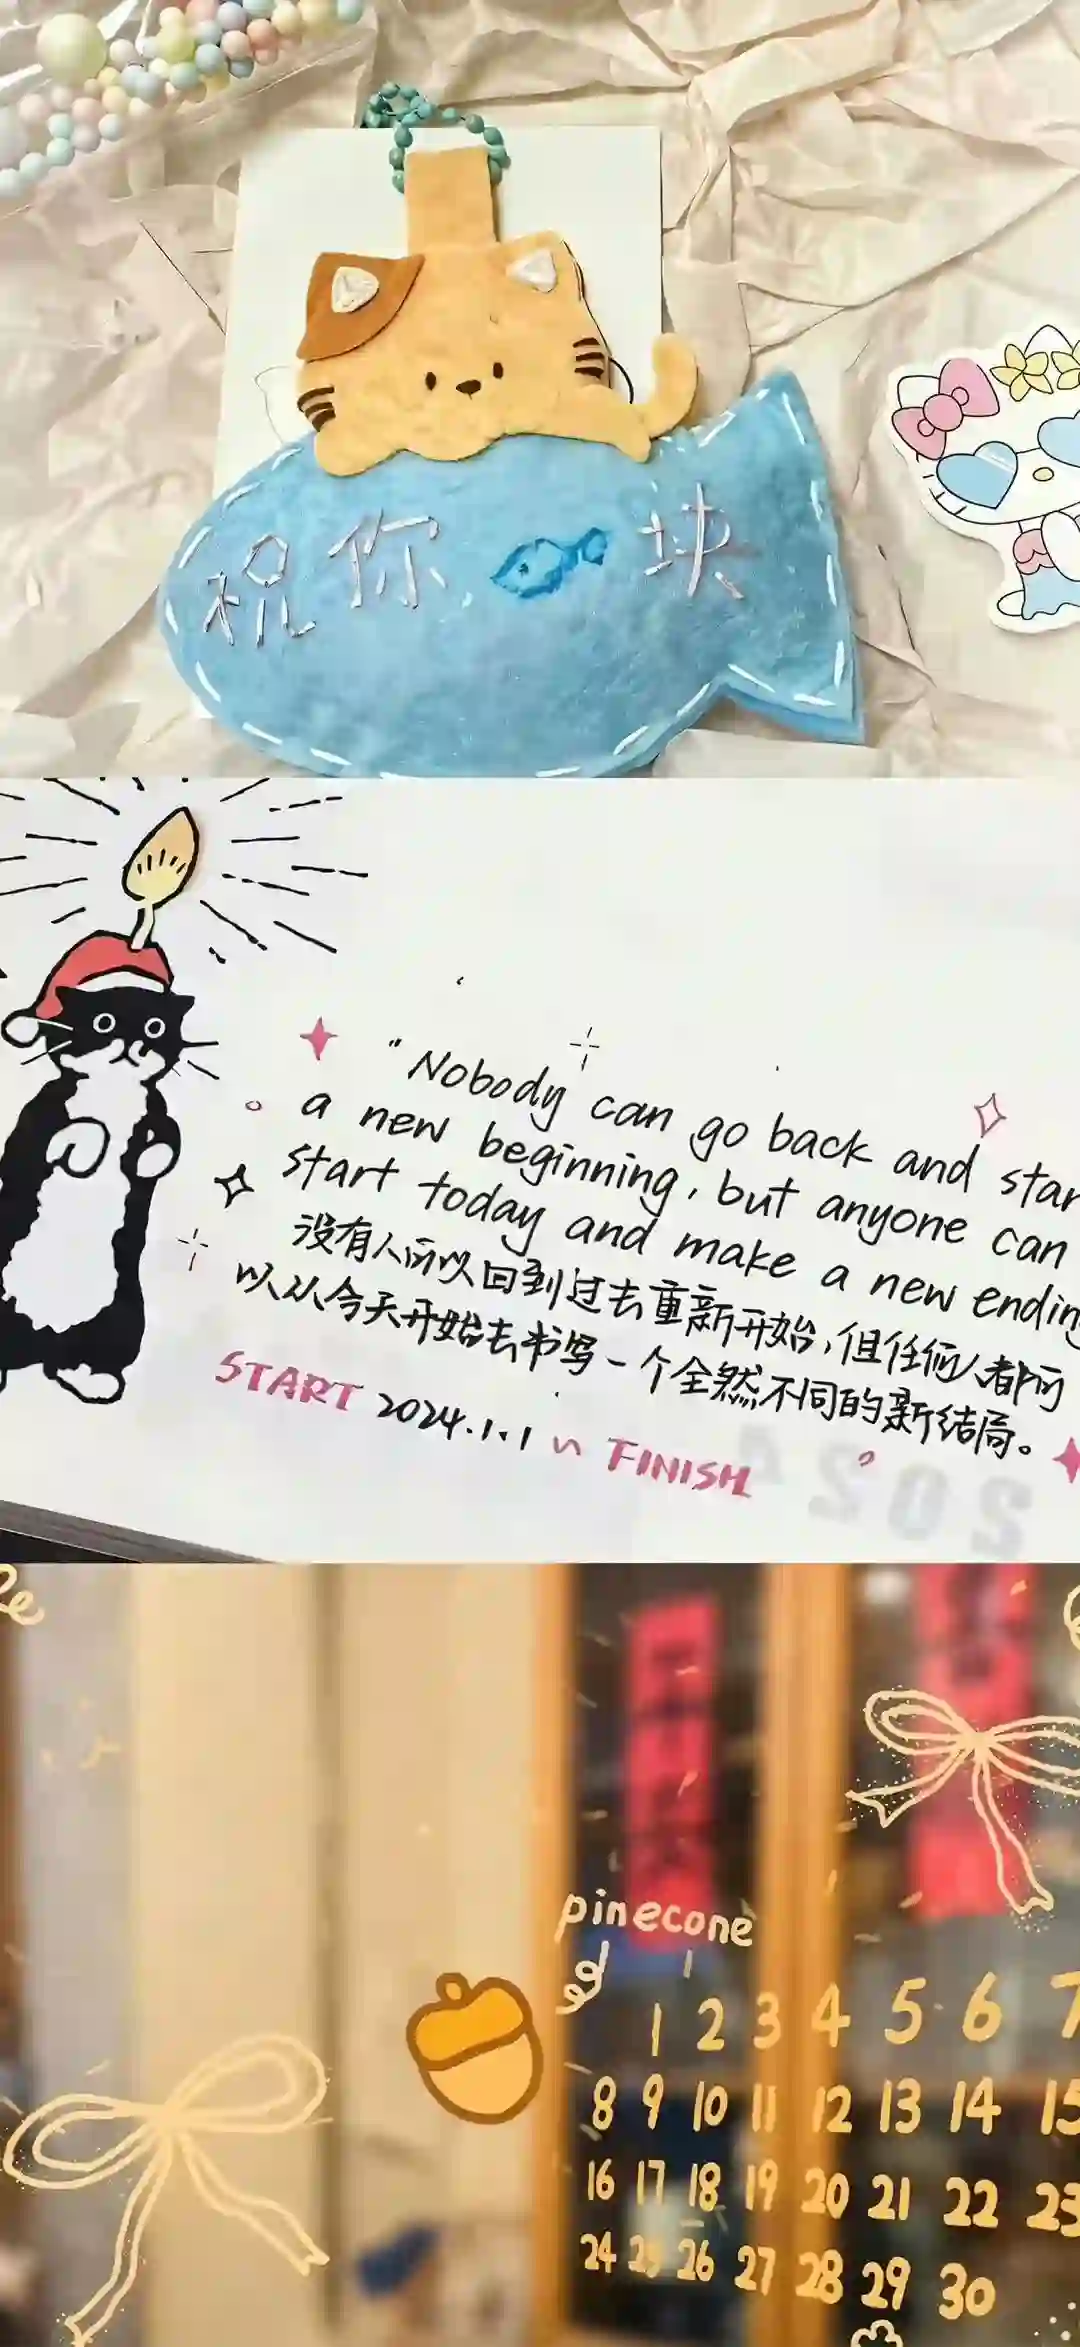 祝你块
"Nobody can go back and star
a new beginning, but anyone can
start today and make a new ending
没有人可以回到过去重新开始,但任何人都可
以从今天开始去书写一个全然不同的新结局。
START 2024.1.1 ~ FINISH
2024
pinecone
1 2 3 4 5 6 7
8 9 10 11 12 13 14 15
16 17 18 19 20 21 22 23
24 25 26 27 28 29 30